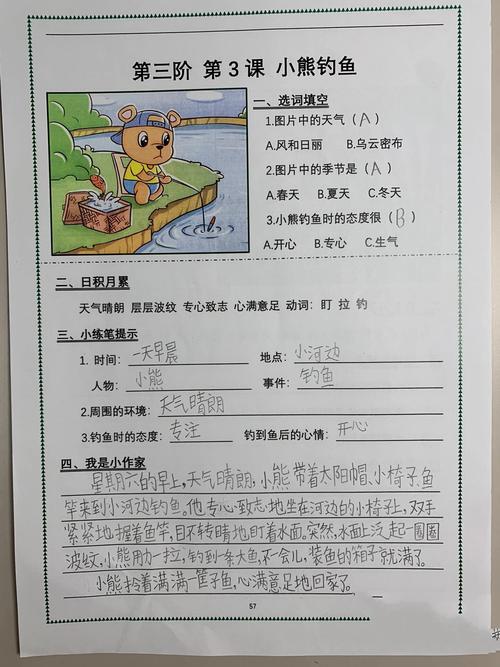 第三阶 第3课 小熊钓鱼
一、选词填空
1.图片中的天气（A）
A.风和日丽 B.乌云密布
2.图片中的季节是（A）
A.春天 B.夏天 C.冬天
3.小熊钓鱼时的态度很（B）
A.开心 B.专心 C.生气
二、日积月累
天气晴朗 层层波纹 专心致志 心满意足 动词：盯 拉 钓
三、小练笔提示
1. 时间：一天早晨 地点：小河边
人物：小熊 事件：钓鱼
2.周围的环境：天气晴朗
3.钓鱼时的态度：专注 钓到鱼后的心情：开心
四、我是小作家
星期六的早上，天气晴朗，小熊带着太阳帽、小椅子、鱼
竿来到小河边钓鱼。他专心致志地坐在河边的小椅子上，双手
紧紧地握着鱼竿，目不转睛地盯着水面。突然，水面上泛起一圈圈
波纹，小熊用力一拉，钓到一条大鱼，不一会儿，装鱼的箱子就满了。
小熊拎着满满一筐子鱼，心满意足地回家了。
57